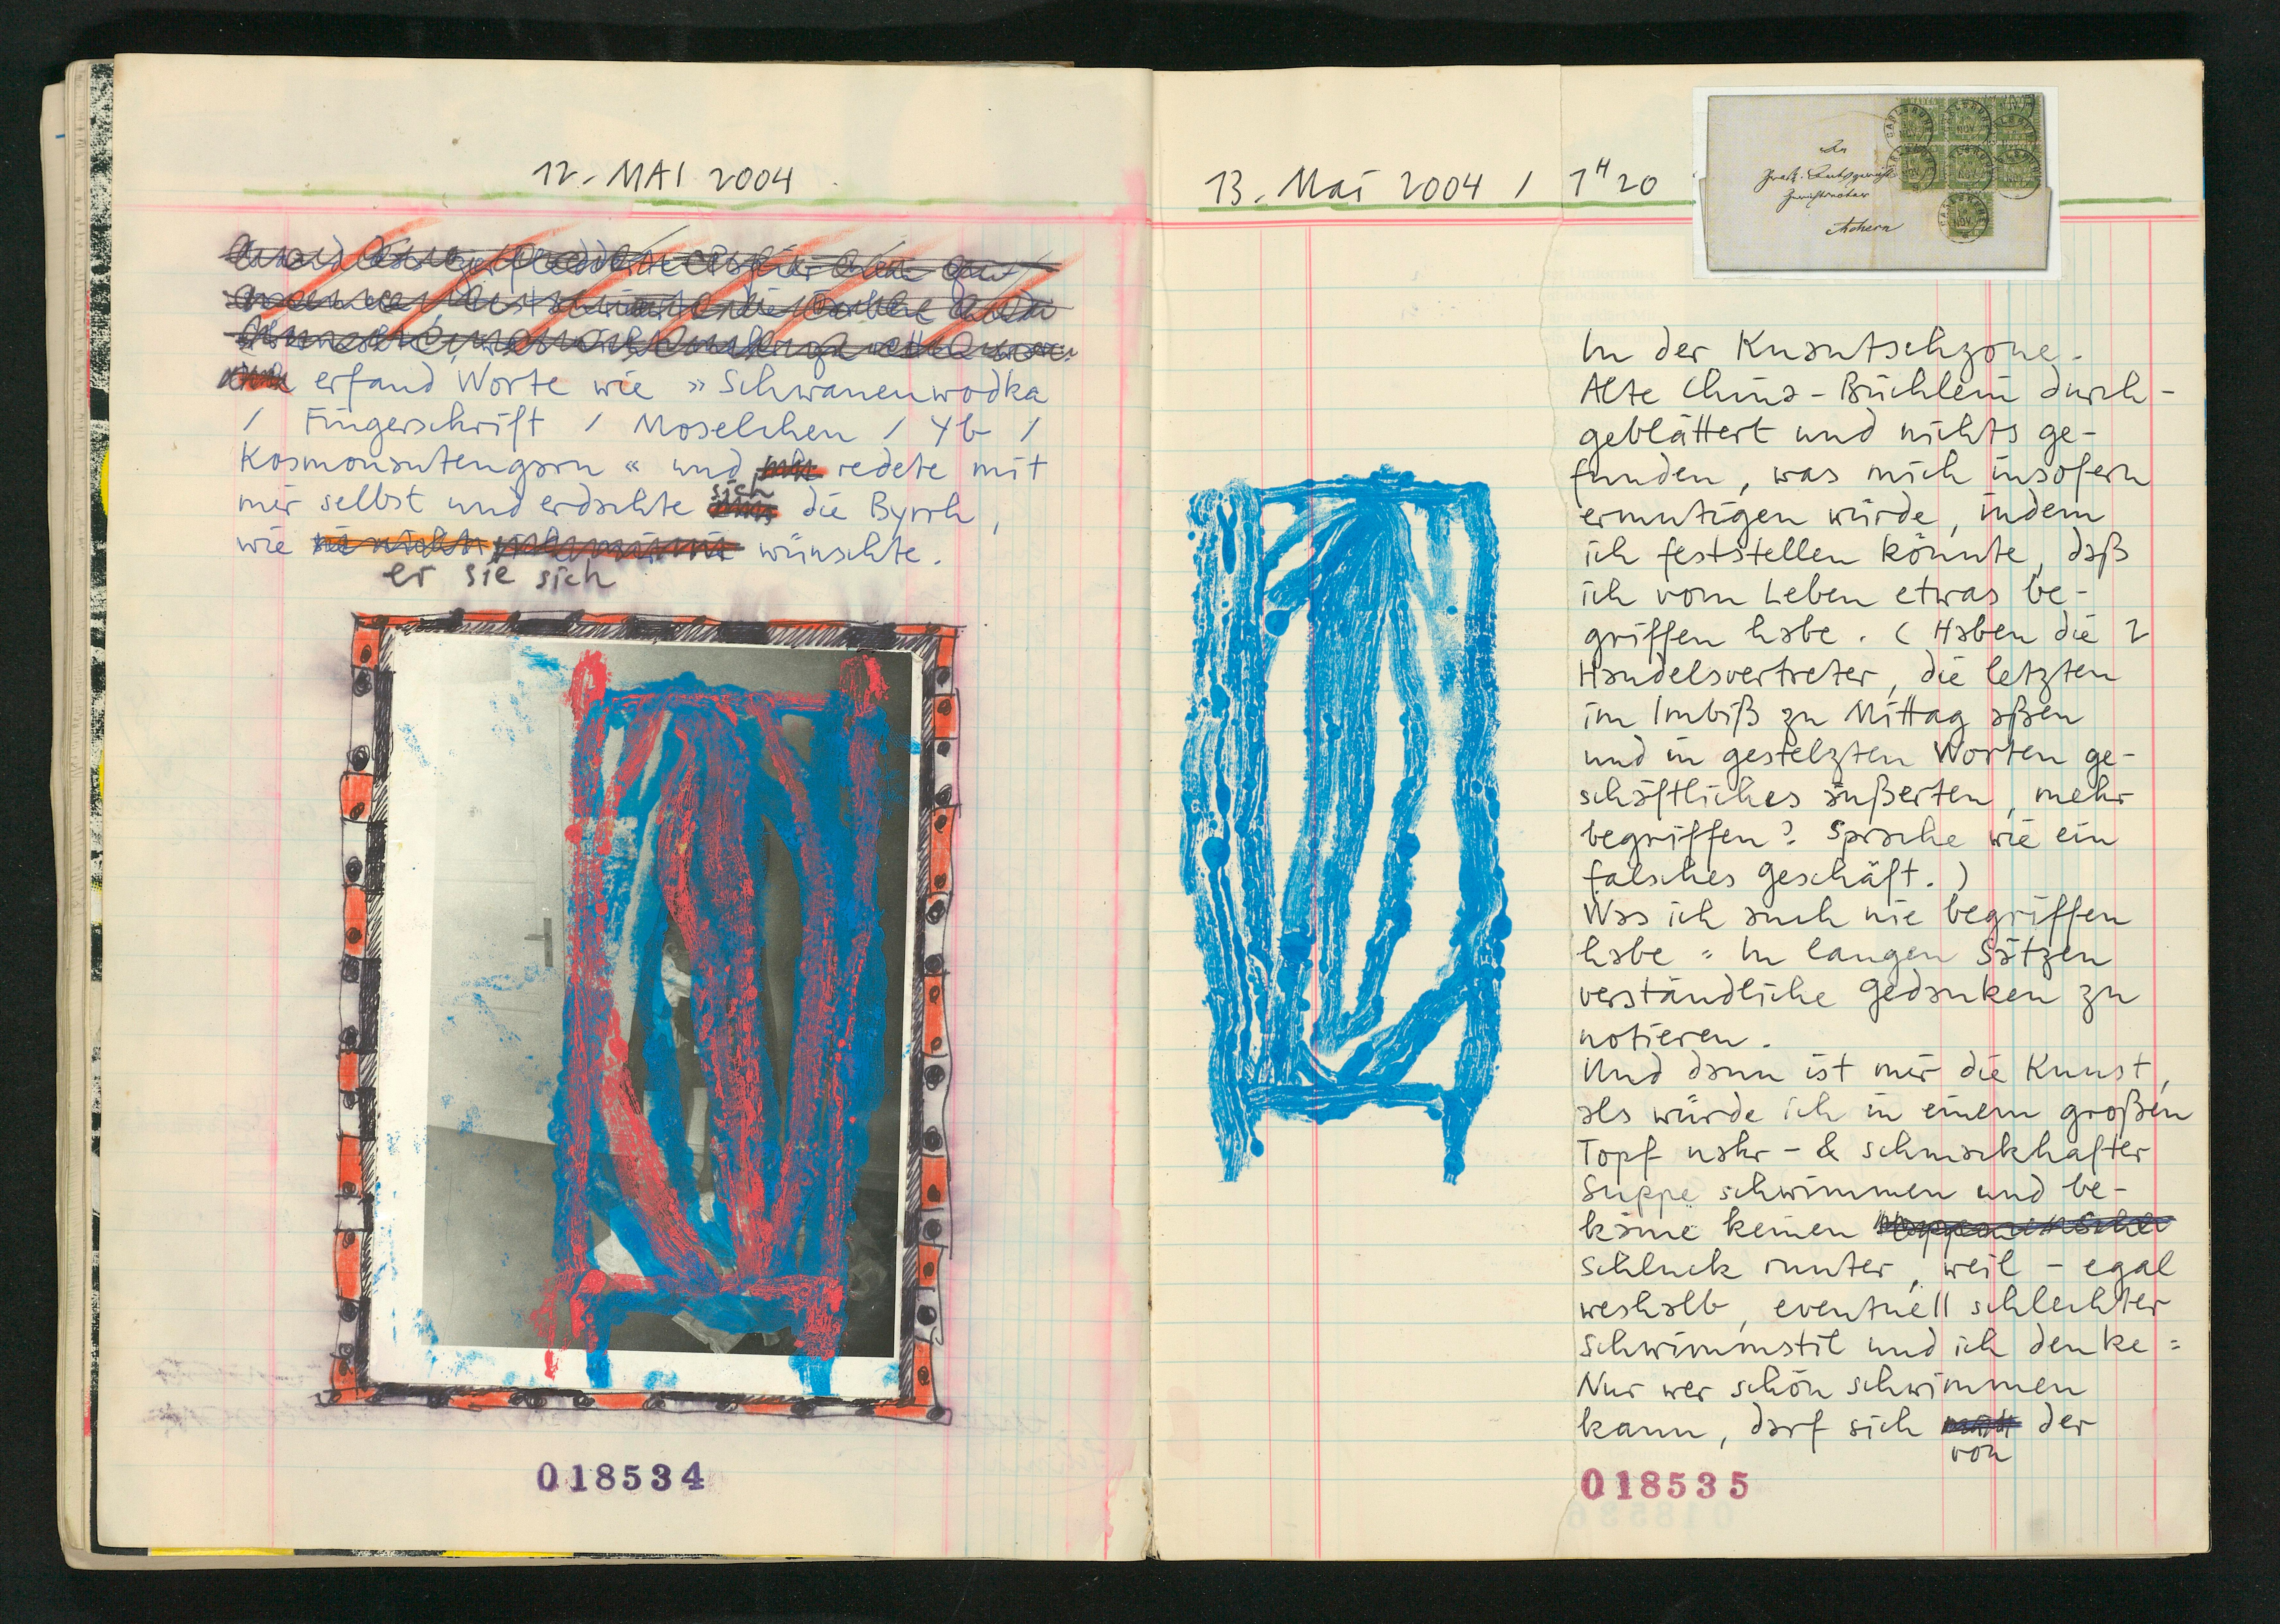 12. MAI 2004
erfand Worte wie » Schwanenwodka
/ Fingerschrift / Moselchen / Yb /
Kosmonautengarn « und redete mit
mir selbst und erdachte sich die Byrrh,
wie wünschte.
er sie sich
018534
13. Mai 2004 / 1H20
An
Achern
In der Knautschzone.
Alte China-Büchlein durch-
geblättert und nichts ge-
funden, was mich insofern
ermutigen würde, indem
ich feststellen könnte, daß
ich vom Leben etwas be-
griffen habe. (Haben die 2
Handelsvertreter, die letzten
im Imbiß zu Mittag aßen
und in gestelzten Worten ge-
schäftliches äußerten, mehr
begriffen? Sprache wie ein
falsches Geschäft.)
Was ich auch nie begriffen
habe = In langen Sätzen
verständliche Gedanken zu
notieren.
Und dann ist mir die Kunst,
als würde ich in einem großen
Topf nahr- & schmackhafter
Suppe schwimmen und be-
käme keinen
Schluck runter, weil - egal
weshalb, eventuell schlechter
Schwimmstil und ich denke =
Nur wer schön schwimmen
kann, darf sich der
von
018535